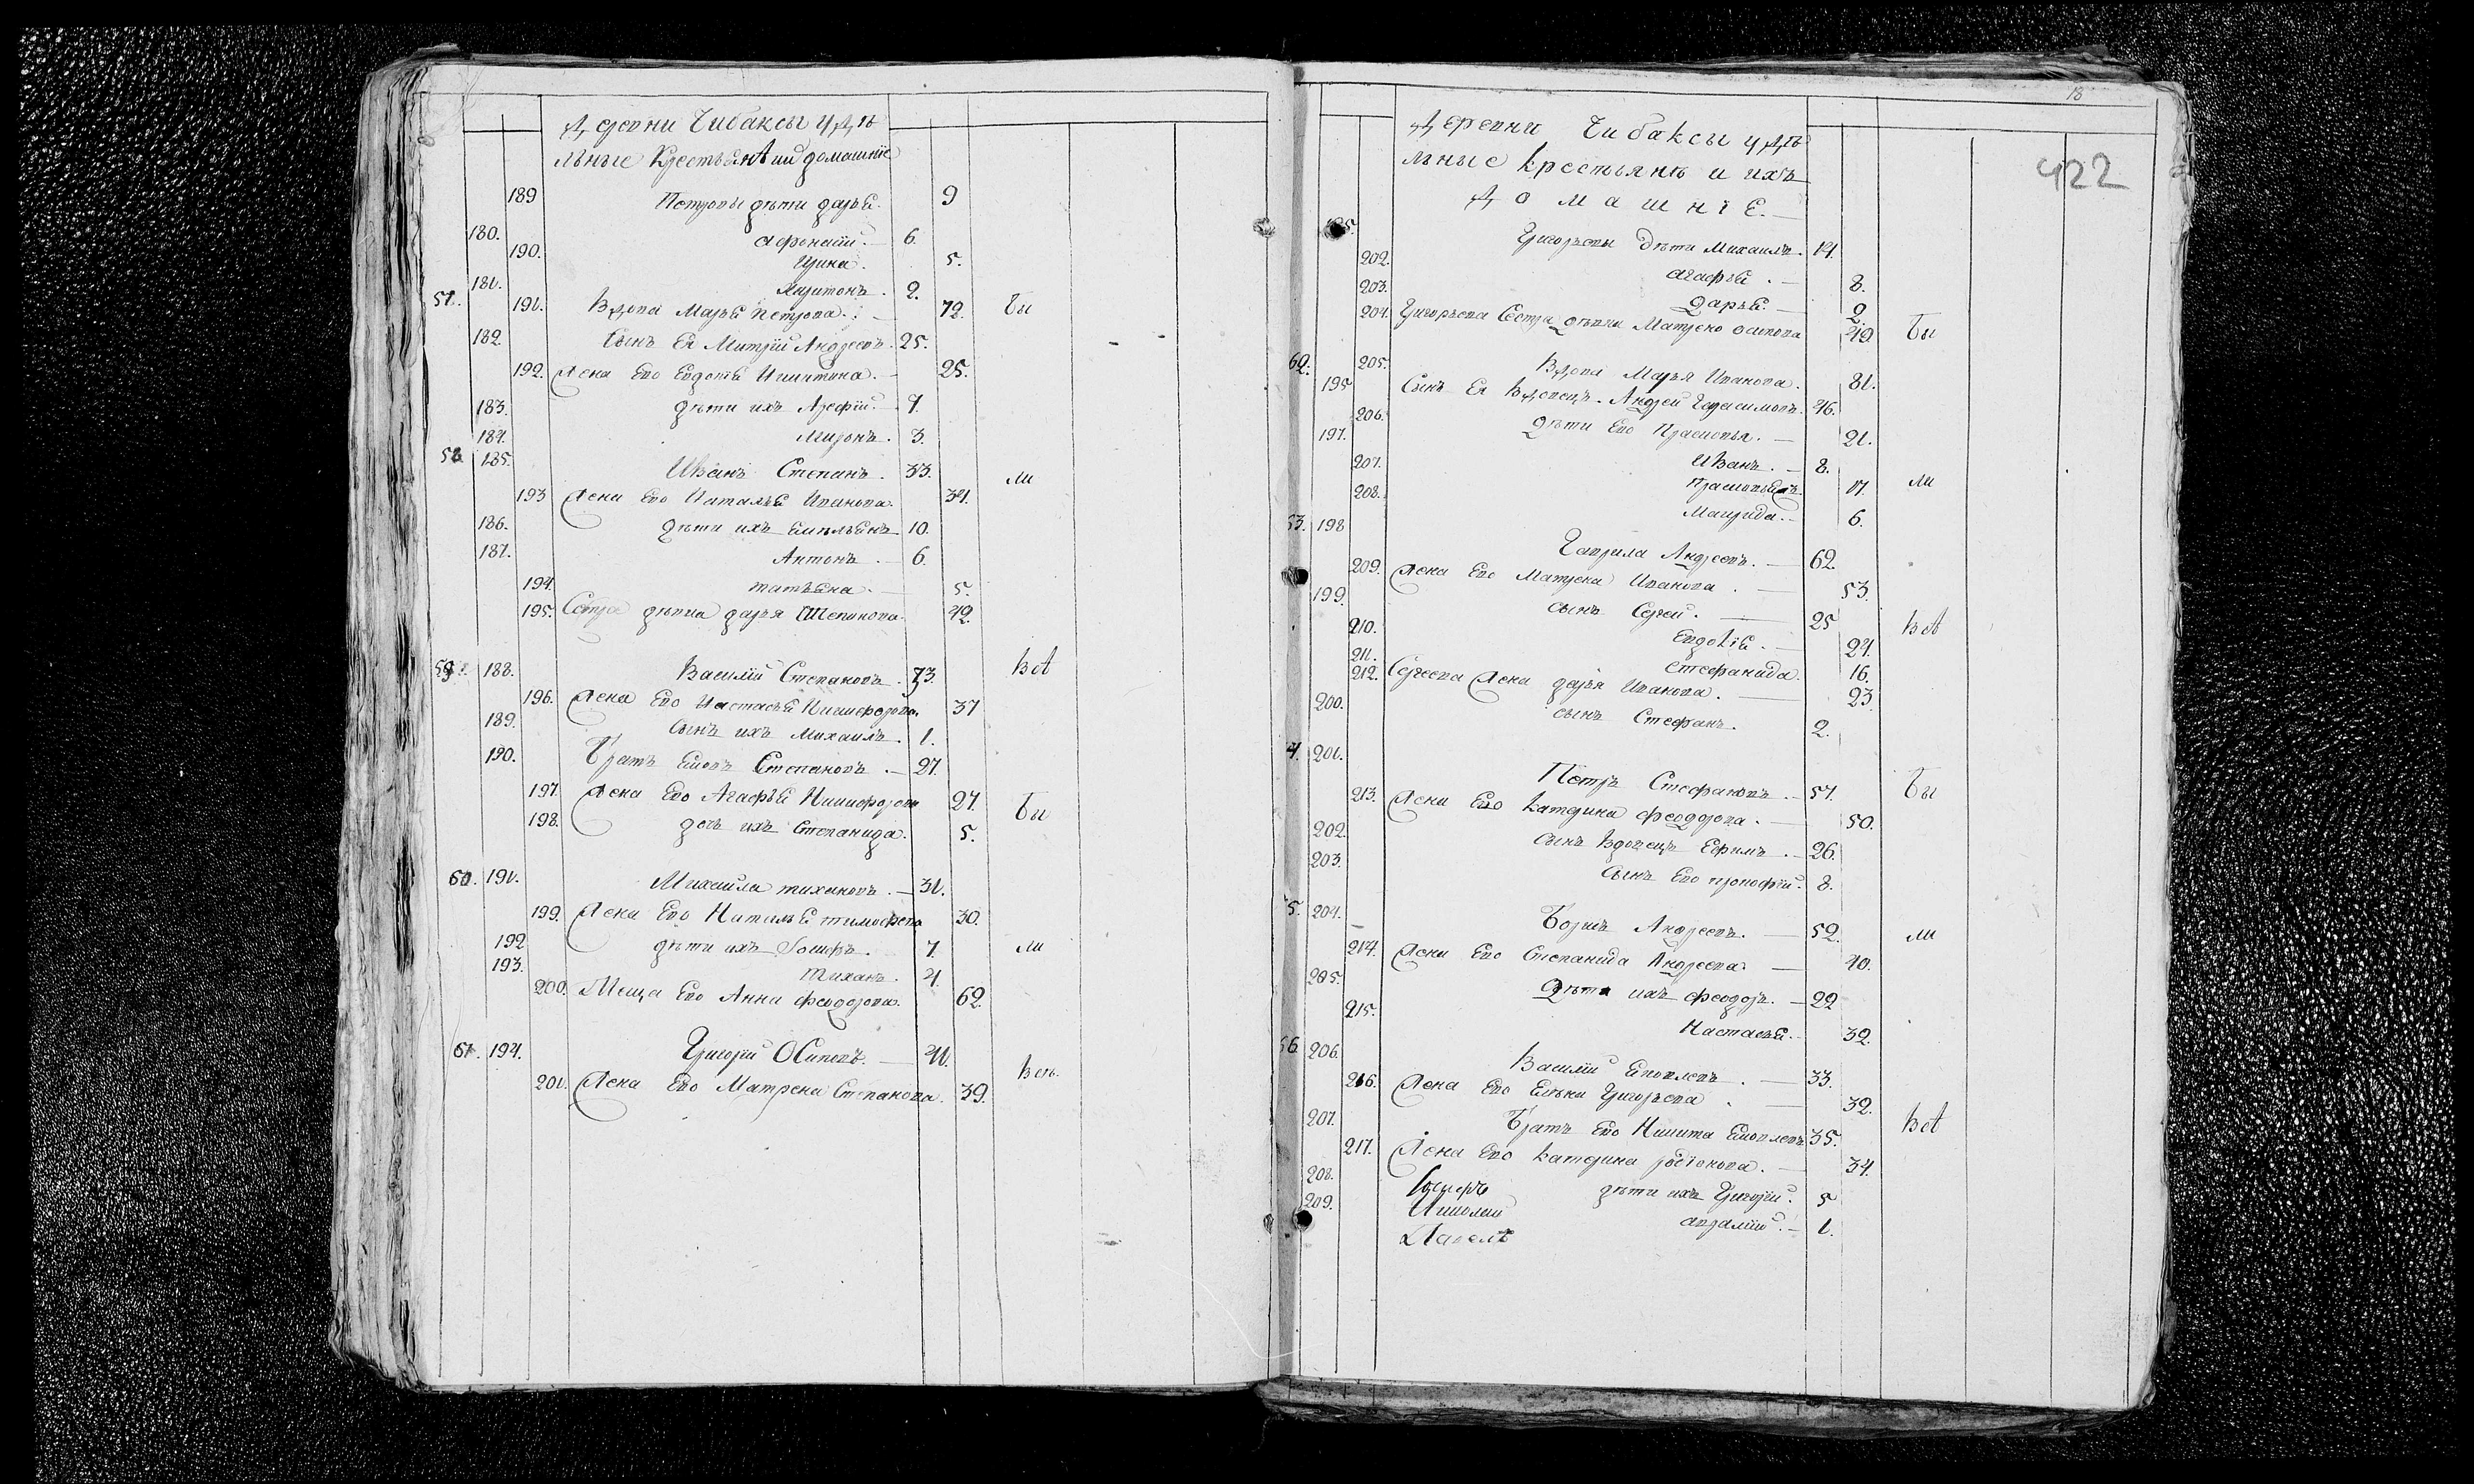 Деревни Чибаксы удѣ
льные Крестьянѣ ии домашніе
189 Петровы дѣти дарья. 9
180. афонасій. 6.
190. Ирина. 5.
181. Харитонъ. 2.
57. 191. Вдова Марья Петрова. 72. бы
182. Сынъ Ея Митрій Андреевъ. 25.
192. Жена Ево Евдотья Никитина. 25.
183. дѣти ихъ Арефій. 7.
184. Миронъ. 3.
58 185. Иванъ Степанъ. 33. ли
193 Жена Ево Наталья Иванова. 34.
186. дѣти ихъ Емельянъ 10.
187. Антонъ. 6.
194. татьяна. 5.
195. Сестра дѣвка дарья Степанова. 42.
59 188. Василій Степановъ. 33. всѣ
196. Жена Ево Настасья Никифорова. 37
189. Сынъ ихъ Михаилъ. 1.
190. Братъ Степановъ. 27.
197. Жена Ево Агафья Никифорова 27. бы
198. дочь ихъ Степанида. 5.
60. 191. Михаила тихановъ. 31.
199. Жена Ево Наталья тимофева 30.
192 дѣти ихъ Іосифъ. 7. ли
193. тиханъ. 4.
200. Теща Ево Анна феодорова. 62.
61. 194. Григорій Осиповъ. 41.
201. Жена Ево Матрена Степанова. 39. всѣ.
18
422
Деревни Чибаксы удѣ
льные крестьянѣ и ихъ
домашніе.
195. Григорьевы Дѣти Михаилъ. 14.
202. агафья. 8.
203. Дарья. 2.
204. Григорьева Сестра дѣвка Матрена осипова 49. бы
62. 205. Вдова Марья Иванова. 81.
195 Сынъ Ея Вдовецъ Андрей Герасимовъ. 46.
206. Дѣти Ево Прасковья. 21.
197. Иванъ. 8.
207. Прасковья. 17. ли
208. Маврида. 6.
63. 198 Гаврила Андреевъ. 62.
209. Жена Ево Матрена Иванова. 53.
199. сынъ Сергей. 25 всѣ
210. Евдокія. 24.
211. Стефанида. 16.
212. Сергеева Жена дарья Иванова. 23
200. сынъ Стефанъ. 2.
4. 201. Петръ Стефановъ. 57. бы
213. Жена Ево катерина феодорова. 50.
202. сынъ вдовецъ Ефимъ. 26.
203. Сынъ Ево прокофій. 8.
5. 204. Борисъ Андреевъ. 52. ли
214. Жена Ево Степанида Андреева. 40.
205. Дѣти ихъ феодоръ. 22
215. Настасья. 32.
66 206. Василій Яковлевъ. 33.
216. Жена Ево Елена Григорьева. 32.
207. Братъ Ево Никита Яковлевъ. 35. всѣ
217. Жена Ево катерина родіонова. 34.
208. Іосифъ дѣти ихъ Григорій. 5
209. Николай авралій. 1.
Павелъ